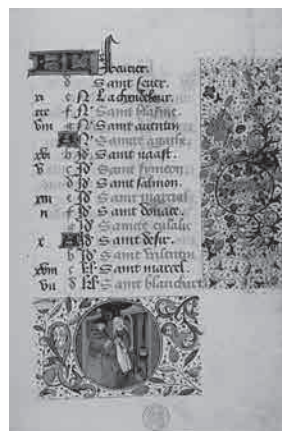 feurier.
d Saint seuer.
xi e N La chandeleur.
xix f N Saint blasme.
viii g N Saint auentin
A N Saincte agathe
xvi b Id Saint vaast.
v c Id Saint symeon
d Id Saint salmon.
xiii e Id Saint marcial
ii f Id Saint donace.
g Id Saincte eulalie
x A Id Saint desir.
b Id Saint valentin
xviii c kl Saint marcel.
vii d kl Saint blanchart